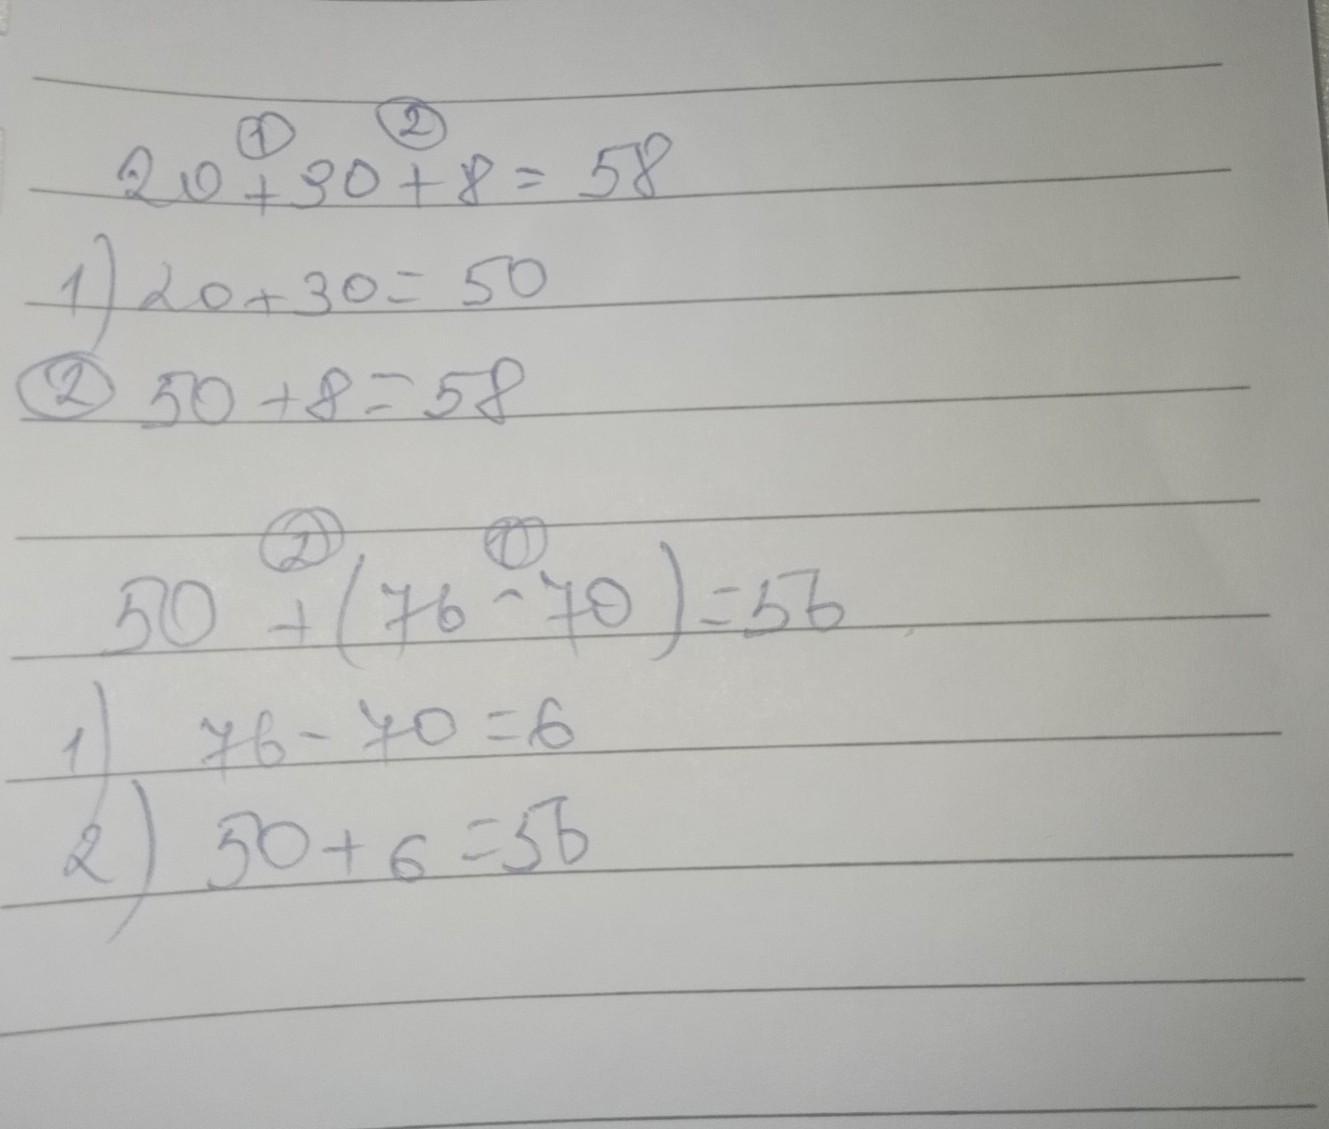 ① ②
20+30+8=58
1) 20+30=50
② 50+8=58
② ①
50+(76-70)=56
1) 76-70=6
2) 50+6=56